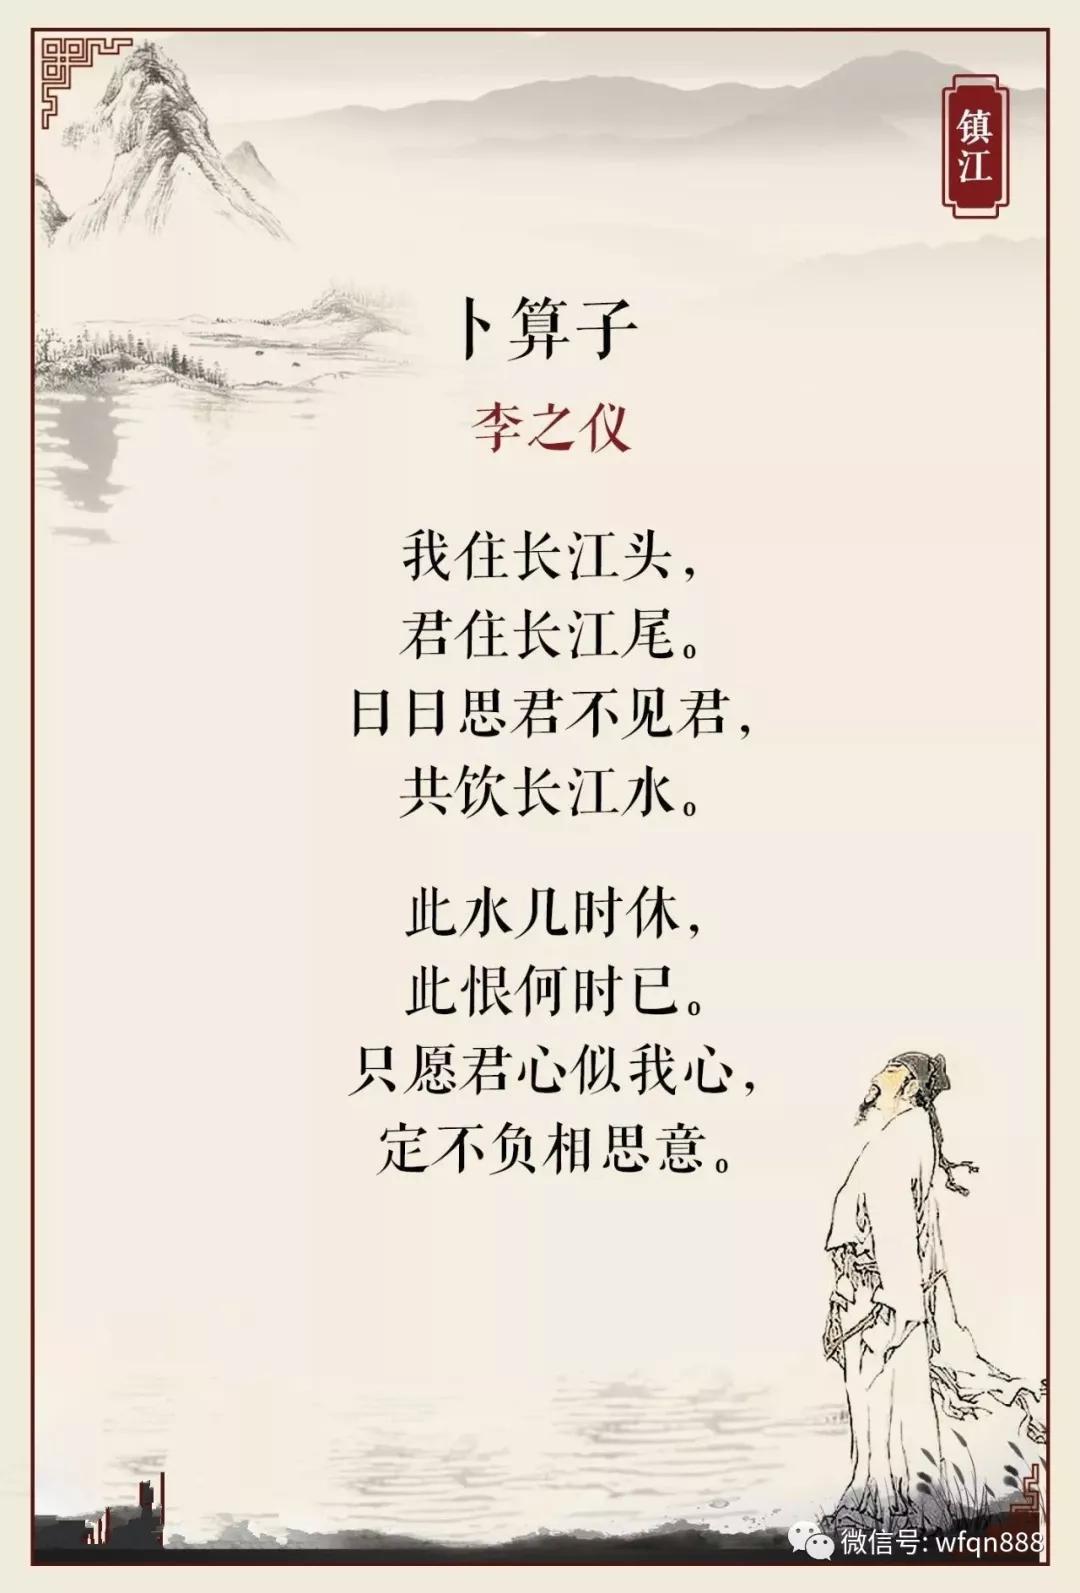 镇江
卜算子
李之仪
我住长江头，
君住长江尾。
日日思君不见君，
共饮长江水。
此水几时休，
此恨何时已。
只愿君心似我心，
定不负相思意。
微信号: wfqn888